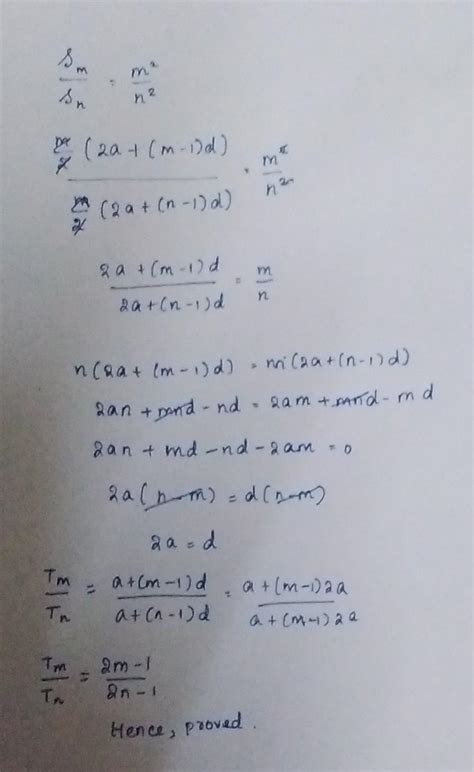 Sm/Sn = m²/n²
m/2 (2a + (m-1)d) / n/2 (2a + (n-1)d) = m²/n²
2a + (m-1)d / 2a + (n-1)d = m/n
n(2a + (m-1)d) = m(2a + (n-1)d)
2an + mnd - nd = 2am + mnd - md
2an + md - nd - 2am = 0
2a(n-m) = d(n-m)
2a = d
Tm/Tn = a+(m-1)d / a+(n-1)d = a+(m-1)2a / a+(n-1)2a
Tm/Tn = 2m-1 / 2n-1
Hence, proved.